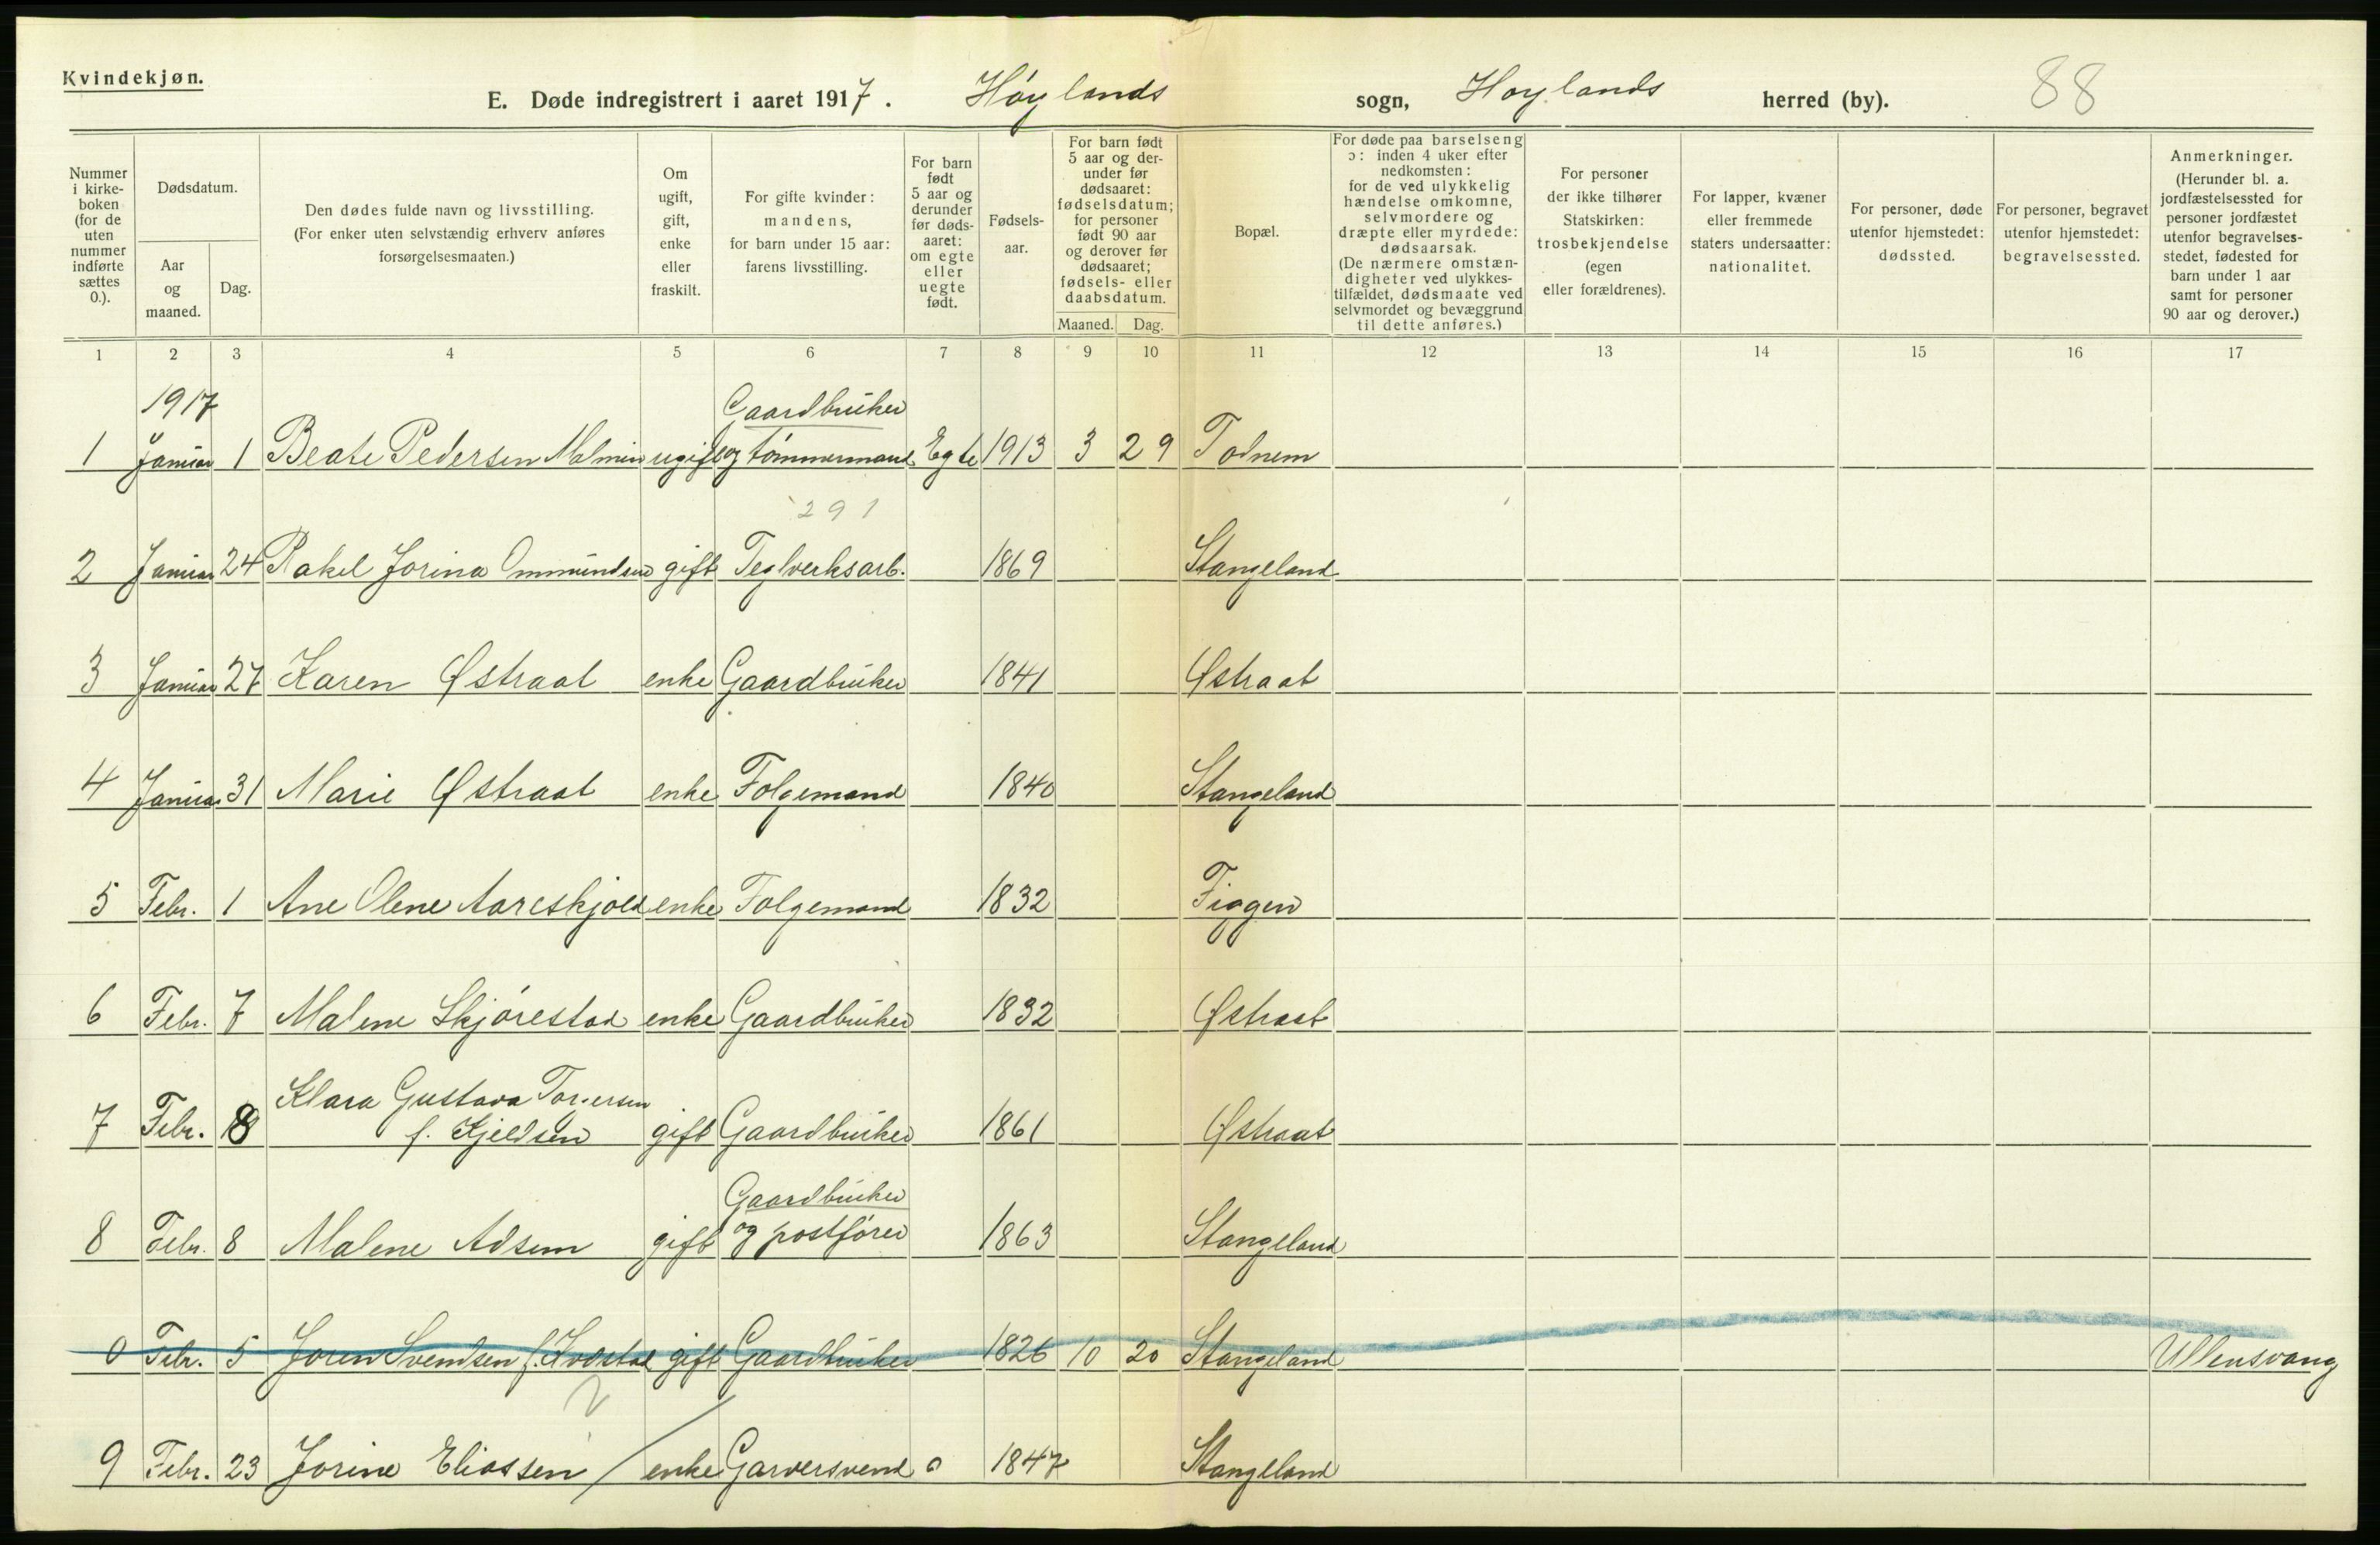 Kvindekjøn.
E. Døde indregistrert i aaret 1917. Høylands sogn, Høylands herred (by). 88
Nummer i kirke-boken (for de uten nummer indførte sættes 0.).
Dødsdatum.
Aar og maaned.
Dag.
Den dødes fulde navn og livsstilling.
(For enker uten selvstændig erhverv anføres forsørgelsesmaaten.)
Om ugift, gift, enke eller fraskilt.
For gifte kvinder: mandens, for barn under 15 aar: farens livsstilling.
For barn født 5 aar og derunder før døds-aaret: om egte eller uegte født.
Fødsels-aar.
For barn født 5 aar og der-under før dødsaaret: fødselsdatum; for personer født 90 aar og derover før dødsaaret; fødsels- eller daabsdatum.
Maaned. Dag.
Bopæl.
For døde paa barselseng ɔ: inden 4 uker efter nedkomsten: for de ved ulykkelig hændelse omkomne, selvmordere og dræpte eller myrdede: dødsaarsak. (De nærmere omstæn-digheter ved ulykkes-tilfældet, dødsmaate ved selvmordet og bevæggrund til dette anføres.)
For personer der ikke tilhører Statskirken: trosbekjendelse (egen eller forældrenes).
For lapper, kvæner eller fremmede staters undersaatter: nationalitet.
For personer, døde utenfor hjemstedet: dødssted.
For personer, begravet utenfor hjemstedet: begravelsessted.
Anmerkninger. (Herunder bl. a. jordfæstelsessted for personer jordfæstet utenfor begravelses-stedet, fødested for barn under 1 aar samt for personer 90 aar og derover.)
1 2 3 4 5 6 7 8 9 10 11 12 13 14 15 16 17
1917 Gaardbruker
1 Januar 1 Beate Pedersen Malmin ugift og tømmermand Egte 1913 3 29 Todnem
291
2 Januar 24 Rakel Jorina Ommundsen gift Teglverksarb. 1869 Stangeland
3 Januar 27 Karen Østraat enke Gaardbruker 1841 Østraat
4 Januar 31 Marie Østraat enke Folgemand 1840 Stangeland
5 Febr. 1 Ane Olene Aareskjold enke Folgemand 1832 Figgen
6 Febr. 7 Malene Skjørestad enke Gaardbruker 1832 Østraat
Klara Gustava Torgersen
7 Febr. 8 f. Kjeldsen gift Gaardbruker 1861 Østraat
Gaardbruker
8 Febr. 8 Malene Adsem gift og postfører 1863 Stangeland
0 Febr. 5 Joren Svendsen f. gift Gaardbruker 1826 10 20 Stangeland Ullensvang
9 Febr. 23 Jorine Eliassen enke Garversvend 0 1847 Stangeland